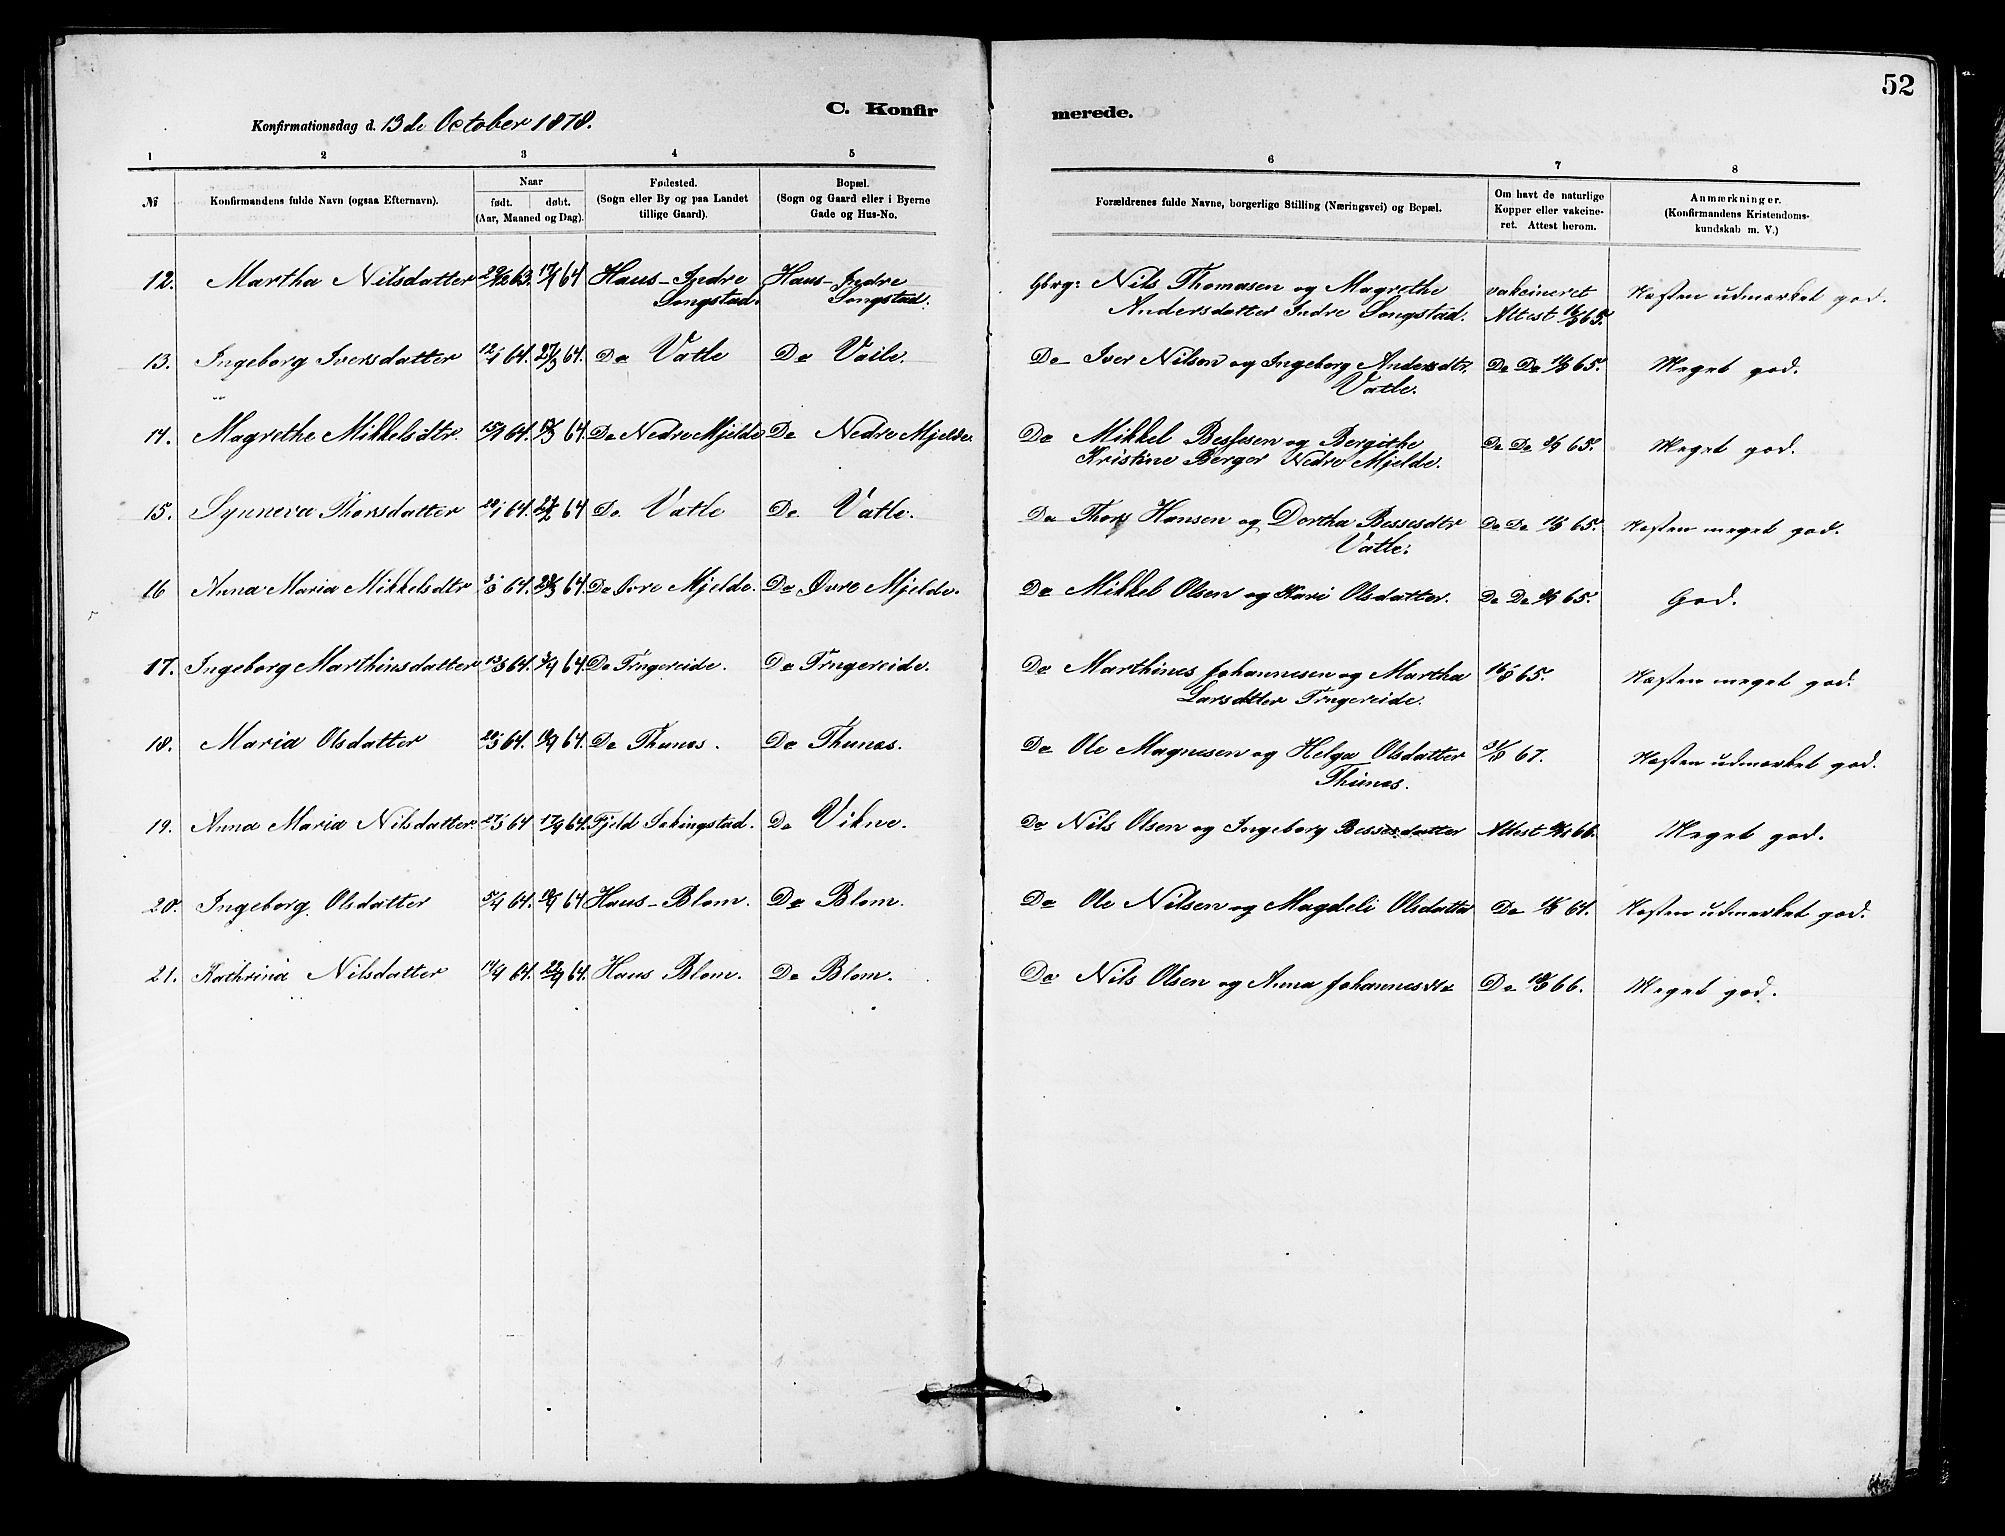 52
C. Konfirmerede.
Konfirmationsdag d. 13de October 1878.
1 2 3 4 5 6 7 8
№
Konfirmandens fulde Navn (ogsaa Efternavn).
Naar
født. døbt.
(Aar, Maaned og Dag).
Fødested.
(Sogn eller By og paa Landet
tillige Gaard).
Bopæl.
(Sogn og Gaard eller i Byerne
Gade og Hus-No.
Forældrenes fulde Navne, borgerlige Stilling (Næringsvei) og Bopæl.
Om havt de naturlige
Kopper eller vakcine-
ret. Attest herom.
Anmærkninger.
(Konfirmandens Kristendoms-
kundskab m. V.)
12. Martha Nilsdatter 29/12 63. 17/1 64 Haus - Indre Haus - Indre Gbrg: Nils Thomasen og Magrethe vakcineret Næsten udmærket god.
Songstad. Songstad. Andersdatter Indre Songstad. Attest 65.
13. Ingeborg Iversdatter 12/1 64. 27/3 64. Do Vatle Do Vatle. Do Iver Nilsen og Ingeborg Andersdtr. Do Do 65. Meget god.
Vatle.
14. Magrethe Mikkelsdtr. 64. 64. Do Nedre Mjelde Do Nedre Mjelde. Do Mikkel Bessesen og Bergithe Do Do 65. Meget god.
Kristine Berger Nedre Mjelde.
15. Synneva Thorsdatter 20/1 64. 64 Do Vatle Do Vatle. Do Hansen og Dortha Bessesdtr Do Do 65. Næsten meget god.
Vatle.
16 Anna Maria Mikkelsdtr 64. 64. Do Øvre Mjelde. Do Øvre Mjelde. Do Mikkel Olsen og Kari Olsdatter. Do Do 65. God.
17. Ingeborg Marthinsdatter 64. 64 Do Trngereide. Do Trngereide. Do Marthines Johannesen og Martha 65. Næsten meget god.
Larsdtter Trngereide.
18. Maria Olsdatter 64. 64. Do Thunes. Do Thunes. Do Ole Magnesen og Helga Olsdatter 67. Næsten udmærket god.
Thunes.
19. Anna Maria Nilsdatter. 64 17/9 64. Fjeld Sekingstad. Do Vikne. Do Nils Olsen og Ingeborg Bessesdatter Attest 66. Meget god.
20. Ingeborg Olsdatter 5/4 64. 64 Haus - Blom. Do Blom. Do Ole Nilsen og Magdeli Olsdatter Do 64. Næsten udmærket god.
21. Kathrina Nilsdatter 64. 64. Haus Blom. Do Blom. Do Nils Olsen og Anna Johannesdtr Do 66. Meget god.